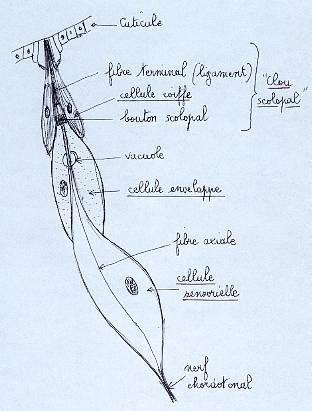 cuticule
fibre terminal (ligament)
"Clou
scolopal"
cellule coiffe
bouton scolopal
vacuole
cellule enveloppe
fibre axiale
cellule
sensorielle
nerf
chordotonal